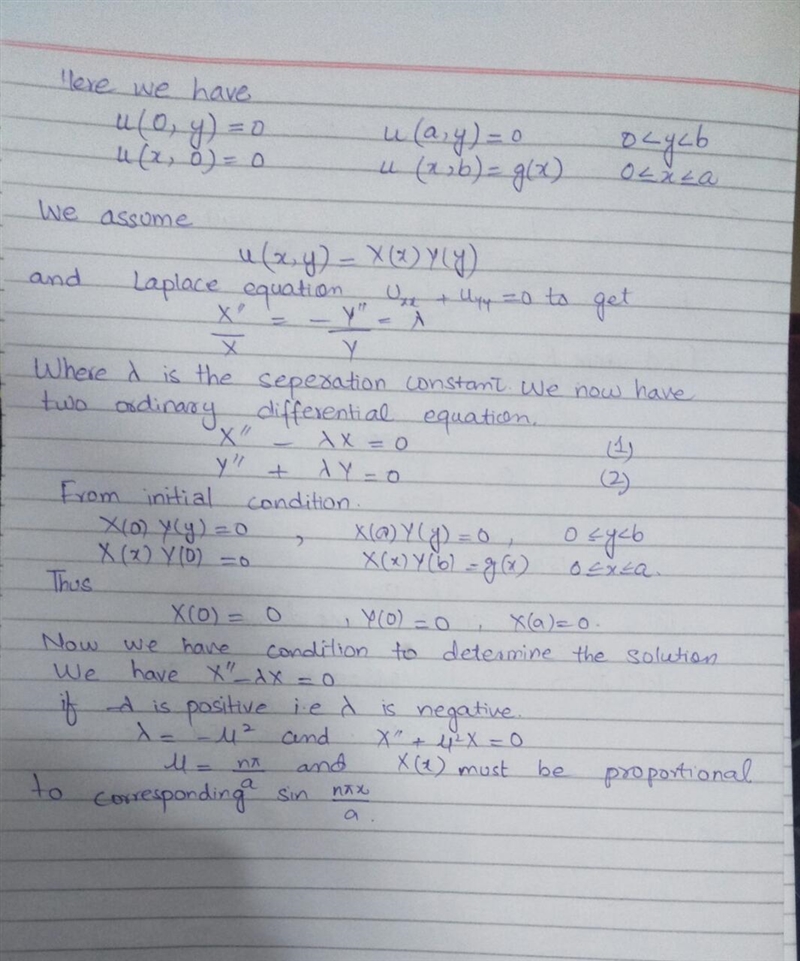 Here we have
u(0, y) = 0 u(a, y) = 0 0 < y < b
u(x, 0) = 0 u (x, b) = g(x) 0 ≤ x ≤ a
We assume
u(x, y) = X(x) Y(y)
and Laplace equation Uxx + uyy = 0 to get
X''/X = - Y''/Y = λ
Where λ is the seperation constant. We now have
two ordinary differential equation.
X'' - λX = 0 (1)
Y'' + λY = 0 (2)
From initial condition.
X(0) Y(y) = 0 , X(a) Y(y) = 0 , 0 ≤ y < b
X(x) Y(0) = 0 X(x) Y(b) = g(x) 0 ≤ x ≤ a.
Thus
X(0) = 0 , Y(0) = 0 , X(a) = 0.
Now we have condition to determine the solution
We have X'' - λX = 0
if -λ is positive i.e λ is negative.
λ = - μ² and X'' + μ²X = 0
μ = nπ/a and X(x) must be proportional
to corresponding sin nπx/a.